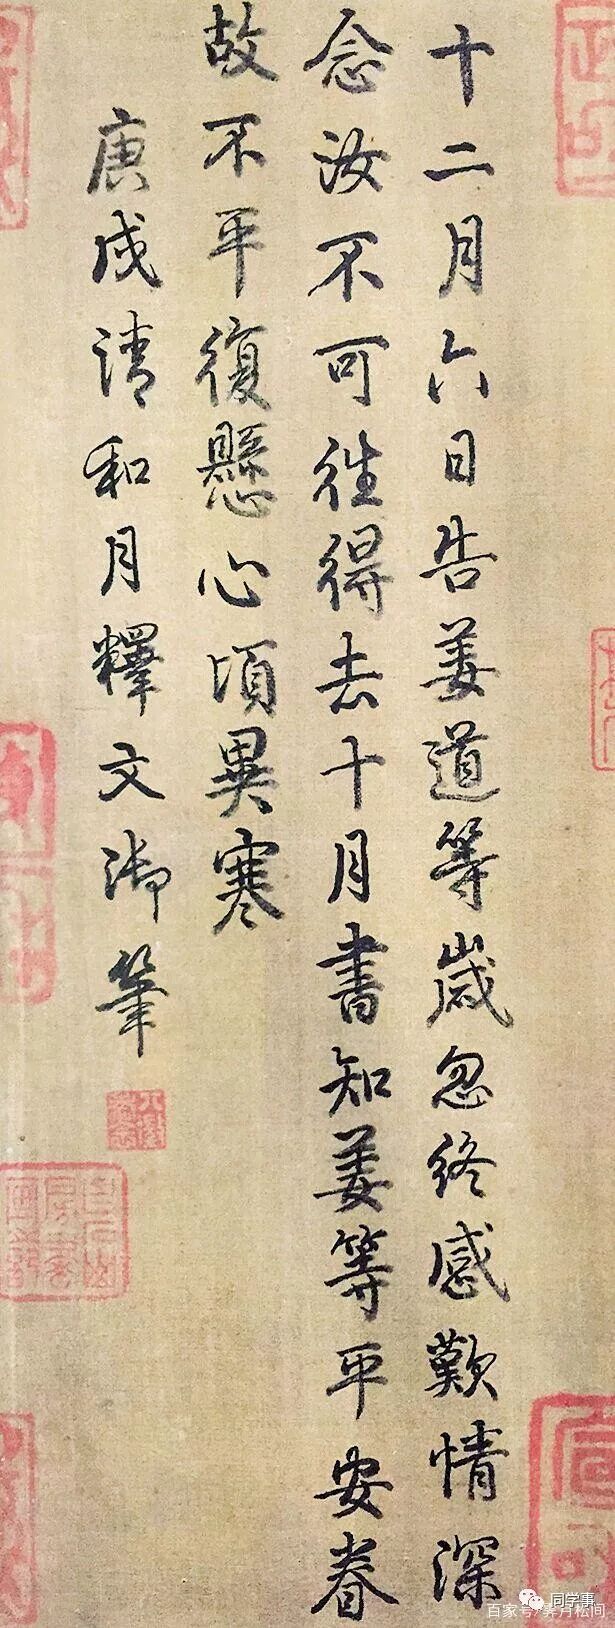 十二月六日告姜道等歲忽終感歎情深
念汝不可往得去十月書知姜等平安眷
故不平復懸心頃異寒
庚戌清和月釋文御筆
同学事
百家号/霁月松间